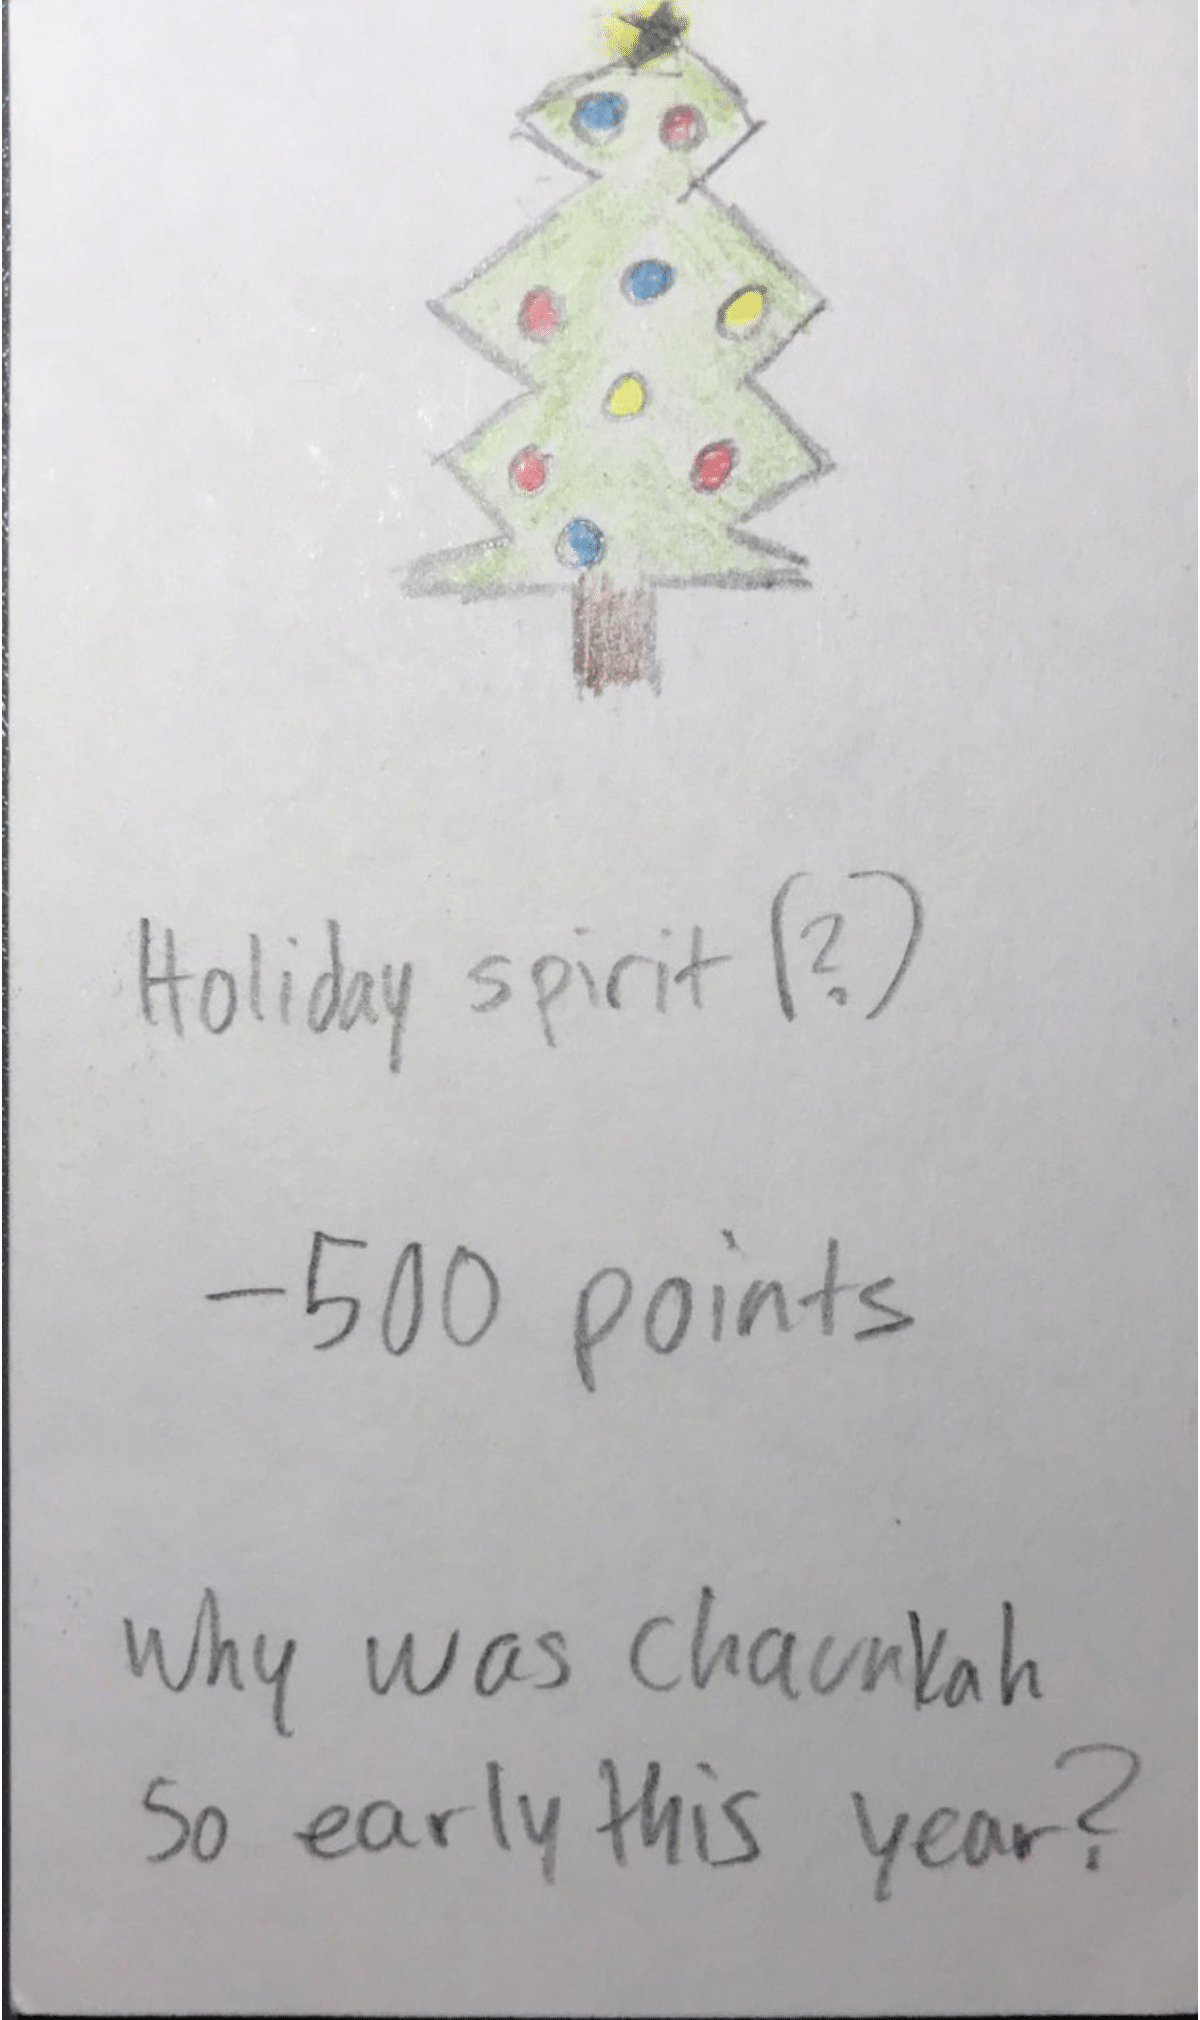 Holiday spirit (?)
-500 points
Why was chaunkah
So early this year?